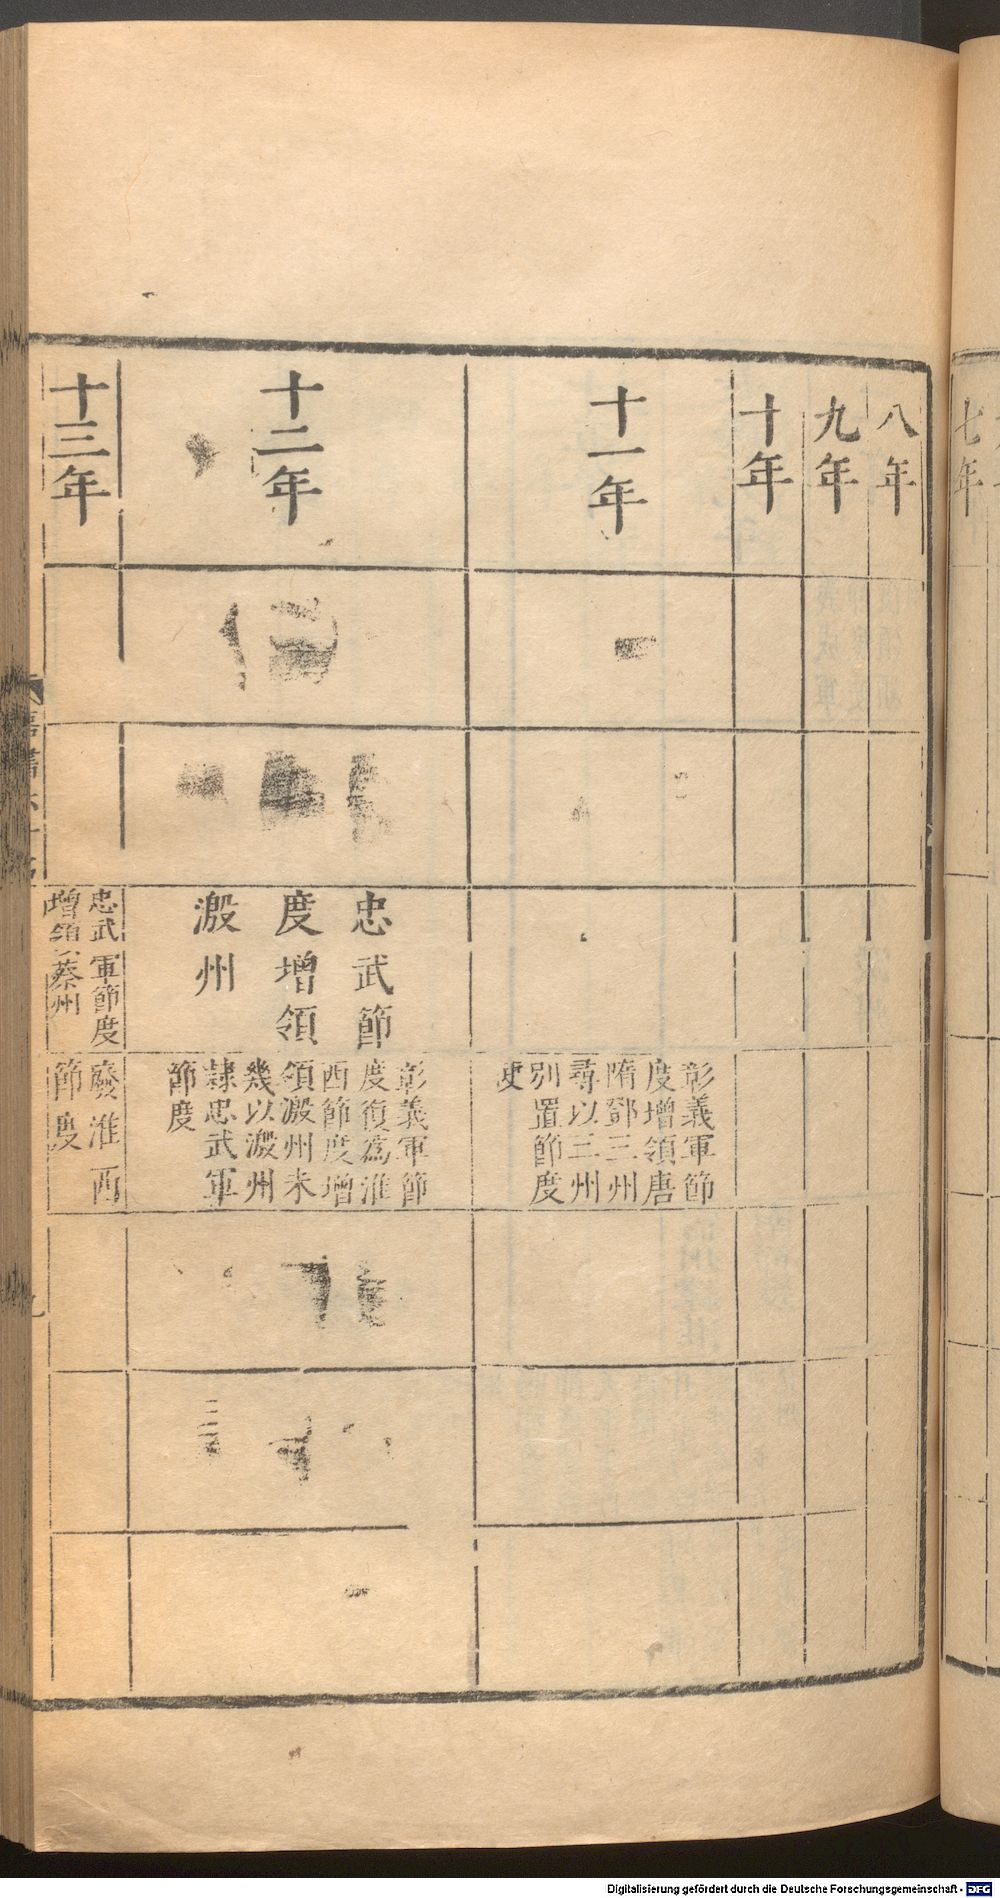 七年
八年
九年
十年
十一年
彰義軍節
度增領唐
隋鄧三州
尋以三州
別置節度
使
十二年
忠武節
度增領
溵州
彰義軍節
度復為淮
西節度增
領溵州未
幾以溵州
隸忠武軍
節度
十三年
忠武軍節度
增領蔡州
廢淮西
節度
Digitalisierung gefördert durch die Deutsche Forschungsgemeinschaft - DFG